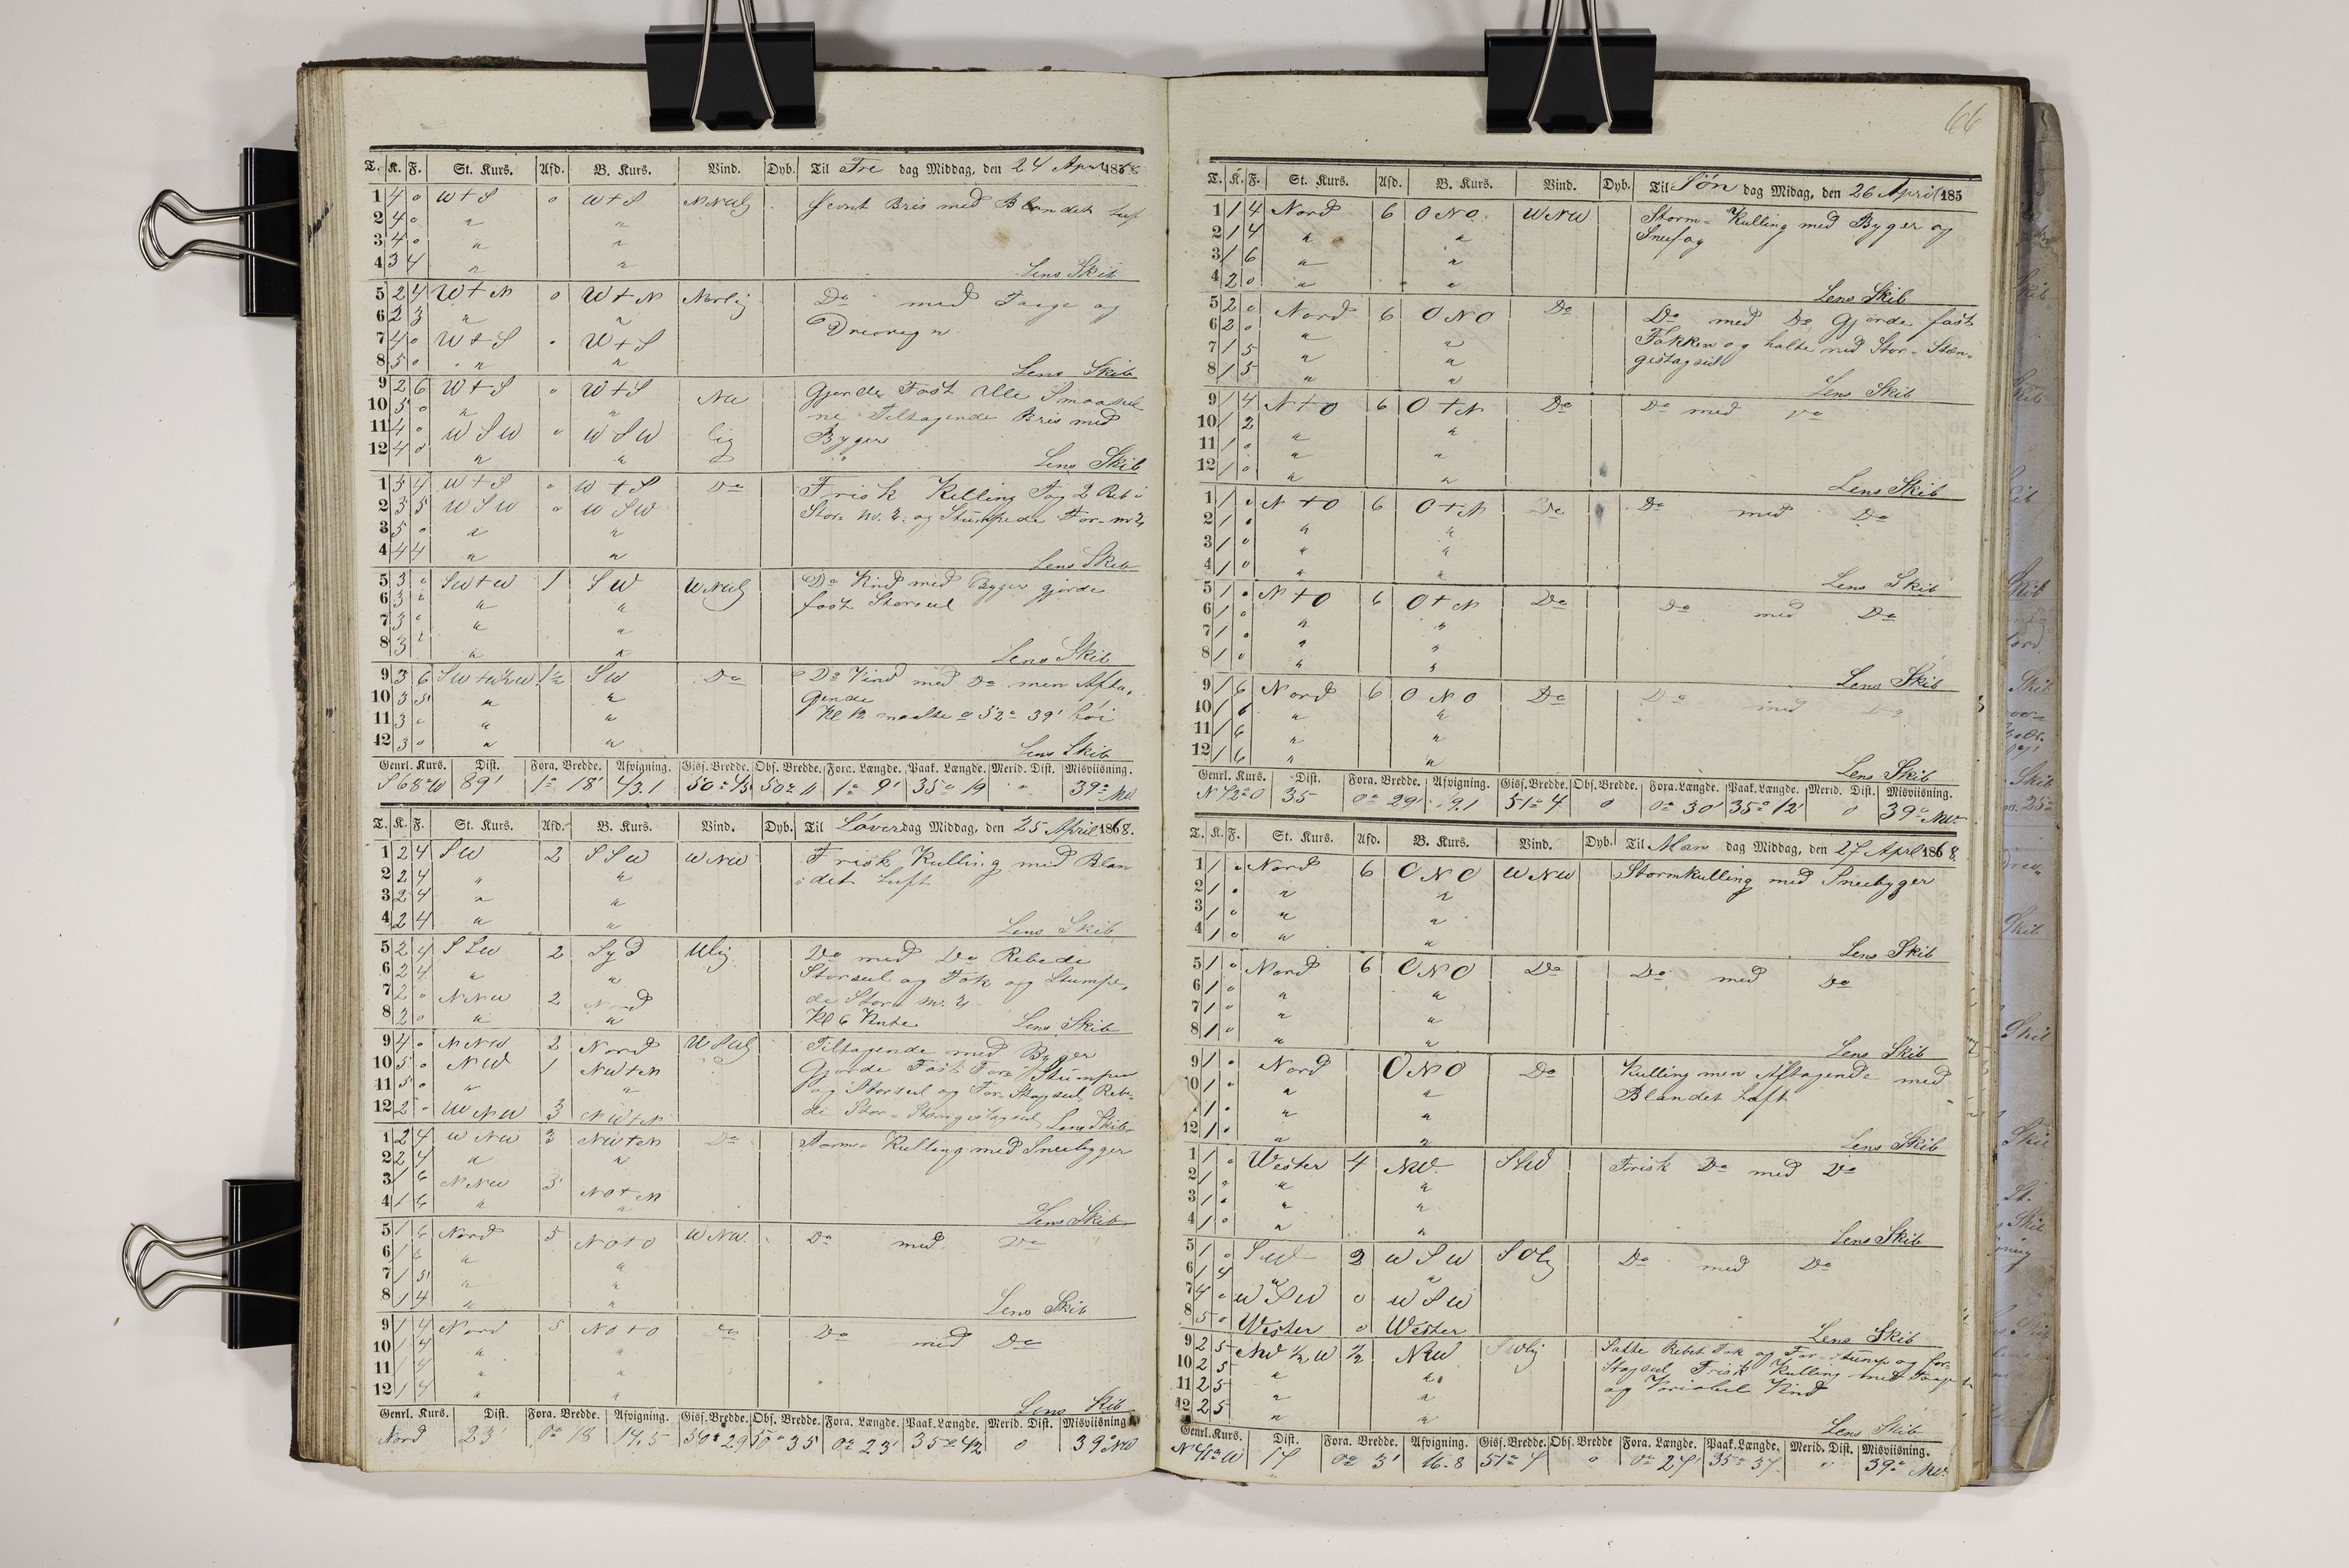 66
T. K. F. St. Kurs. Afd. B. Kurs. Vind. Dyb. Til Fre dag Middag, den 24 April 1868
1 4 0 W+S 0 W+S NNWlg Jevnt Bris med Blandet Luf
2 4 0 " "
3 4 0 " "
4 3 4 " " Lens Skib
5 2 4 W+N 0 W+N Norlig Do med Taage og
6 2 3 " "
7 4 0 W+S 0 W+S
8 5 0 " " Lens Skib
9 2 6 W+S 0 W+S NW Gjorde Fast Alle Smaaseil
10 5 0 " " ne Tiltagende Bris med
11 4 0 WSW 0 WSW lig Byger
12 4 0 " " Lens Skib
1 3 4 W+S 0 W+S Do Frisk Kulling Tog 2 Reb i
2 3 5 WSW 0 WSW Stor- og Stumpede For-
3 5 0 " "
4 4 4 " " Lens Skib
5 3 0 SW+W 1 SW WNWlg Do Vind med Byger gjorde
6 3 0 " " fast Storseil
7 3 0 " "
8 3 " " Lens Skib
9 3 6 1½ SW Do Do Vind med Do men Afta-
10 3 5 " " gende
11 3 0 " " Kl 12 maalte 52° 39'
12 3 0 " " Lens Skib
Genrl. Kurs. Dist. Fora. Bredde. Afvigning. Gisf. Bredde. Obs. Bredde. Fora. Længde. Paak. Længde. Merid. Dist. Misviisning.
S 68° W 89' 1° 18' 43.1 50° 45 50° 11 1° 9' 35° 19 " 39° NW.
T. K. F. St. Kurs. Afd. B. Kurs. Vind. Dyb. Til Löver dag Middag, den 25 April 1868.
1 2 4 SW 2 SSW WNW Frisk Kulling med Blan
2 2 4 " " det Luft
3 2 4 " "
4 2 4 " " Lens Skib
5 2 4 SSW 2 Syd Wlig Do med Do Rebede
6 2 4 " " Storseil og Fok og Stumpe-
7 2 0 NNW 2 Nord de Stor
8 2 0 " " Kl 6 Lens Skib
9 4 0 NNW 2 Nord WSWlg Tiltagende med Byger
10 5 0 NW 1 NW+N Gjorde Fast For Stumpen
11 5 0 " " og Storseil og For-Stagseil Rebe-
12 2 0 WNW 3 NW+N de Stor-Stængestagseil Lens Skib
1 2 4 WNW 3 NW+N Do Storm-Kulling med Sneebyger
2 2 4 " "
3 1 6 NNW 3 NO+N
4 1 6 " " Lens Skib
5 1 6 Nord 5 NO+O WNW. Do med Do
6 1 6 " "
7 1 5 " "
8 1 4 " " Lens Skib
9 1 4 Nord 5 NO+O Do Do med Do
10 1 4 " "
11 1 4 " "
12 1 4 " " Lens Skib
Genrl. Kurs. Dist. Fora. Bredde. Afvigning. Gisf. Bredde. Obs. Bredde. Fora. Længde. Paak. Længde. Merid. Dist. Misviisning.
Nord 23' 0° 18 14.5 50° 29 50° 35 0° 23' 35° 42 0 39° NW
T. K. F. St. Kurs. Afd. B. Kurs. Vind. Dyb. Til Sön dag Midag, den 26 April 185
1 1 4 Nord 6 ONO. WNW Storm-Kulling med Byger og
2 1 4 " " Sneefog
3 1 6 " "
4 2 0 " " Lens Skib
5 2 0 Nord 6 ONO Do Do med Do Gjorde fast
6 2 0 " " Fokken og halte ned Stor-Stæn-
7 1 5 " " gestagseil
8 1 5 " " Lens Skib
9 1 4 N+O 6 O+N Do Do med Do
10 1 2 " "
11 1 0 " "
12 1 0 " " Lens Skib
1 1 0 N+O 6 O+N Do Do med Do
2 1 0 " "
3 1 0 " "
4 1 0 " " Lens Skib
5 1 0 N+O 6 O+N Do Do med Do
6 1 0 " "
7 1 0 " "
8 1 0 " " Lens Skib
9 1 6 Nord 6 ONO Do Do med Do
10 1 6 " "
11 1 6 " "
12 1 6 " " Lens Skib
Genrl. Kurs. Dist. Fora. Bredde. Afvigning. Gisf. Bredde. Obs. Bredde. Fora. Længde. Paak. Længde. Merid. Dist. Misviisning.
35 0° 29' 19.1 51° 4 0 0° 30' 35° 12' 0 39° NW.
T. K. F. St. Kurs. Afd. B. Kurs. Vind. Dyb. Til Man dag Middag, den 27 April 1868.
1 1 0 Nord 6 ONO WNW Stormkulling med Sneebyger
2 1 0 " "
3 1 0 " "
4 1 0 " " Lens Skib
5 1 0 Nord 6 ONO Do Do med Do
6 1 0 " "
7 1 0 " "
8 1 0 " " Lens Skib
9 1 0 Nord ONO Do Kulling men Aftagende med
10 1 0 " " Blandet Luft
11 1 0 " "
12 1 0 " " Lens Skib
1 1 0 Wester 4 NW. SSW Frisk Do med Do
2 1 0 " "
3 1 0 " "
4 1 0 " " Lens Skib
5 1 0 SW 2 WSW SOlg Do med Do
6 1 4 " "
7 4 0 WSW 0 WSW
8 5 0 Wester 0 Wester Lens Skib
9 2 5 NW ½ W ½ NW Satte Rebet Fok og For-Stump og for-
10 2 5 " " Stagseil Frisk Kulling med
11 2 5 " " og Variabel Vind
12 2 5 " " Lens Skib
Genrl. Kurs. Dist. Fora. Bredde. Afvigning. Gisf. Bredde. Obs. Bredde Fora. Længde. Paak. Længde. Merid. Dist. Misviisning.
17 0° 3' 16.8 51° 7 0 0° 27' 35° 37 " 39° NW.